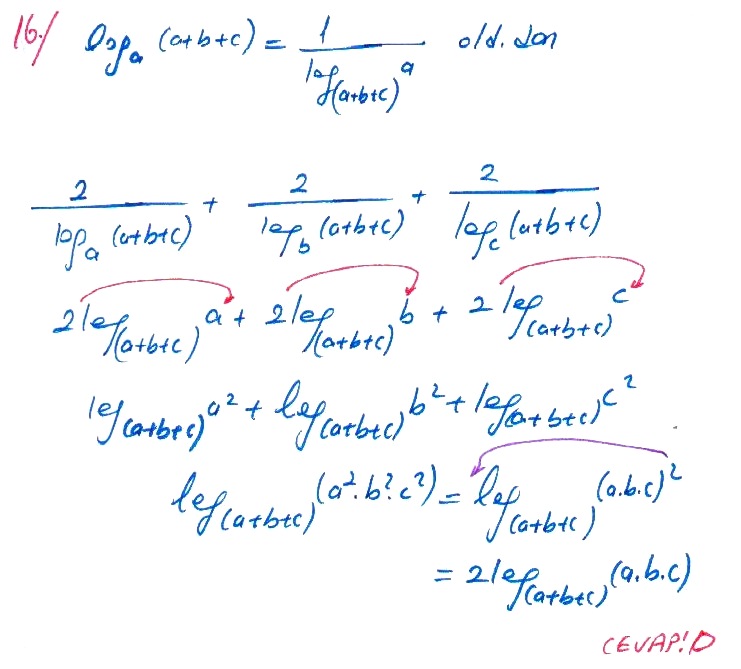 16./ log_a (a+b+c) = 1 / log_(a+b+c) a old. dan
2 / log_a (a+b+c) + 2 / log_b (a+b+c) + 2 / log_c (a+b+c)
2log_(a+b+c) a + 2log_(a+b+c) b + 2log_(a+b+c) c
log_(a+b+c) a² + log_(a+b+c) b² + log_(a+b+c) c²
log_(a+b+c) (a².b².c²) = log_(a+b+c) (a.b.c)²
= 2log_(a+b+c) (a.b.c)
CEVAP: D